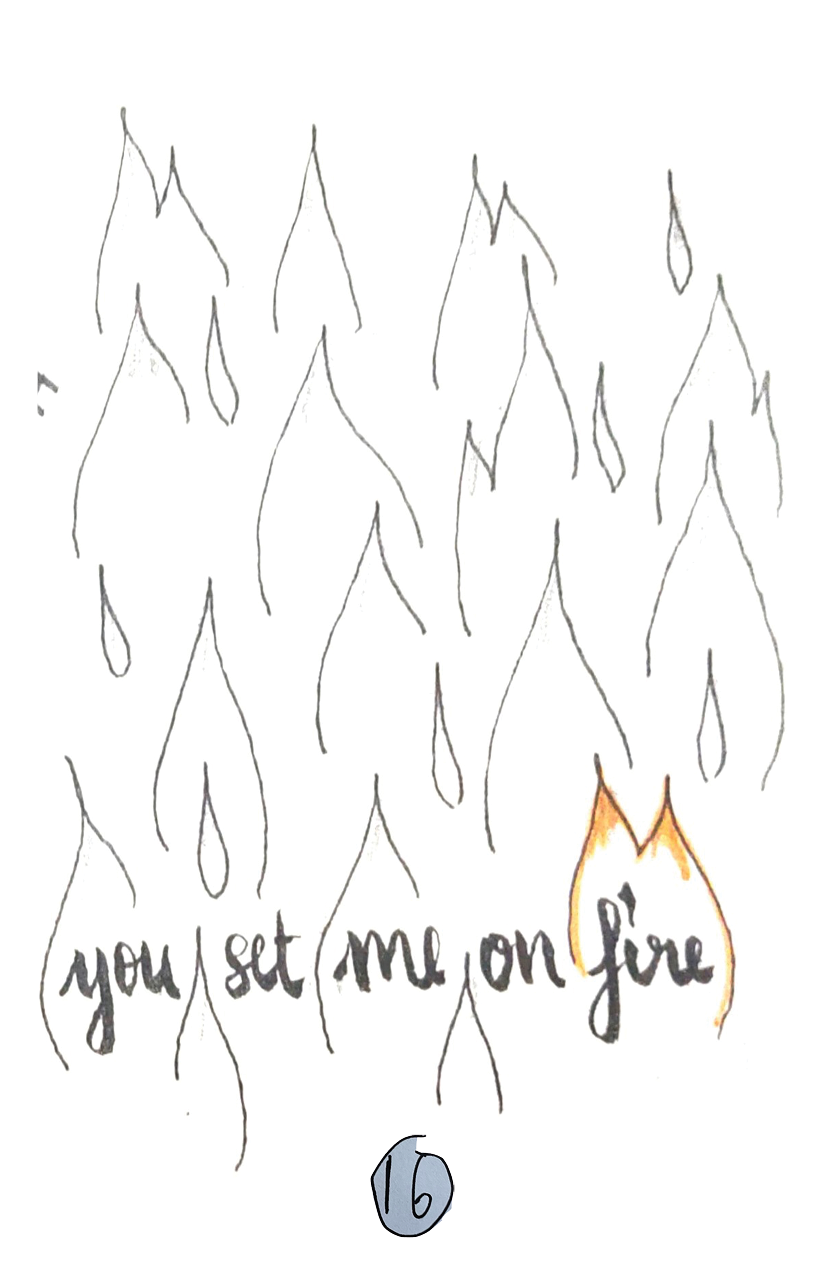 you set me on fire
16